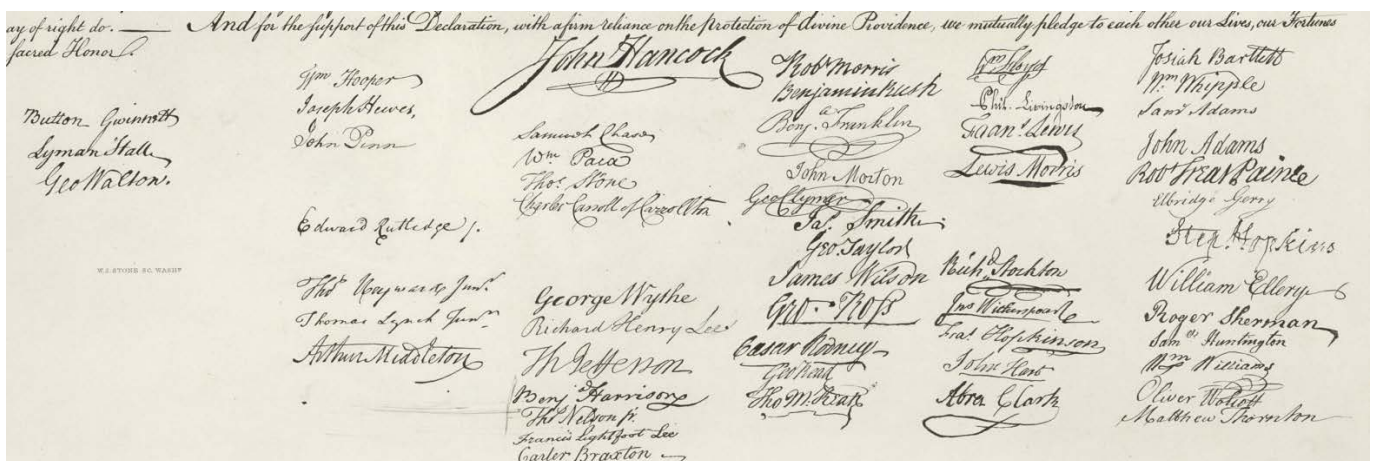 ay of right do. — And for the support of this Declaration, with a firm reliance on the Protection of divine Providence, we mutually pledge to each other our Lives, our Fortunes
sacred Honor.
Button Gwinnett
Lyman Hall
Geo Walton.
W. J. STONE SC. WASHN
Wm Hooper
Joseph Hewes,
John Penn
Edward Rutledge /.
Thos Heyward Junr.
Thomas Lynch Junr.
Arthur Middleton
John Hancock
Samuel Chase
Wm. Paca
Thos. Stone
Charles Carroll of Carrollton
George Wythe
Richard Henry Lee
Th Jefferson
Benj Harrison
Thos Nelson jr.
Francis Lightfoot Lee
Carter Braxton
Robt Morris
Benjamin Rush
Benja. Franklin
John Morton
Geo Clymer
Jas. Smith
Geo. Taylor
James Wilson
Geo. Ross
Caesar Rodney
Geo Read
Tho M:Kean
Wm Floyd
Phil. Livingston
Frans. Lewis
Lewis Morris
Richd. Stockton
Jno Witherspoon
Fras. Hopkinson
John Hart
Abra Clark
Josiah Bartlett
Wm. Whipple
Saml Adams
John Adams
Robt Treat Paine
Elbridge Gerry
Step. Hopkins
William Ellery
Roger Sherman
Saml Huntington
Wm Williams
Oliver Wolcott
Matthew Thornton